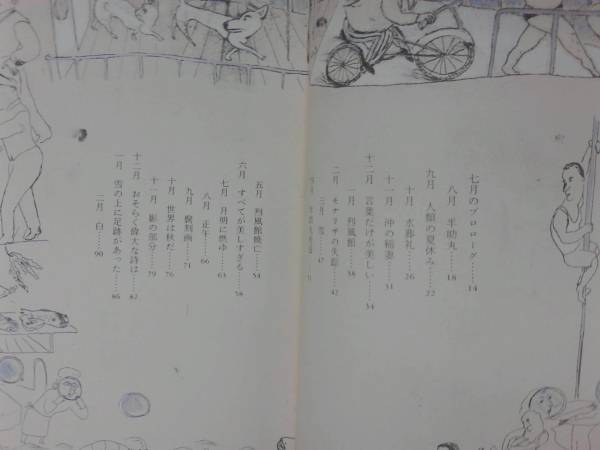 七月のプロローグ……14
八月 半助丸……18
九月 人類の夏休み……22
十月 水葬礼……26
十一月 沖の稲妻……31
十二月 言葉だけが美しい……34
一月 列風館……38
二月 モナ・リザの失踪……42
三月 雪……47
五月 列風館焼亡……54
六月 すべてが美しすぎる……58
七月 月明に燃ゆ……63
八月 正午……66
九月 腐刻画……71
十月 世界は秋だ……76
十一月 影の部分……79
十二月 おそらく偉大な詩は……82
一月 雪の上に足跡があった……86
二月 白……90